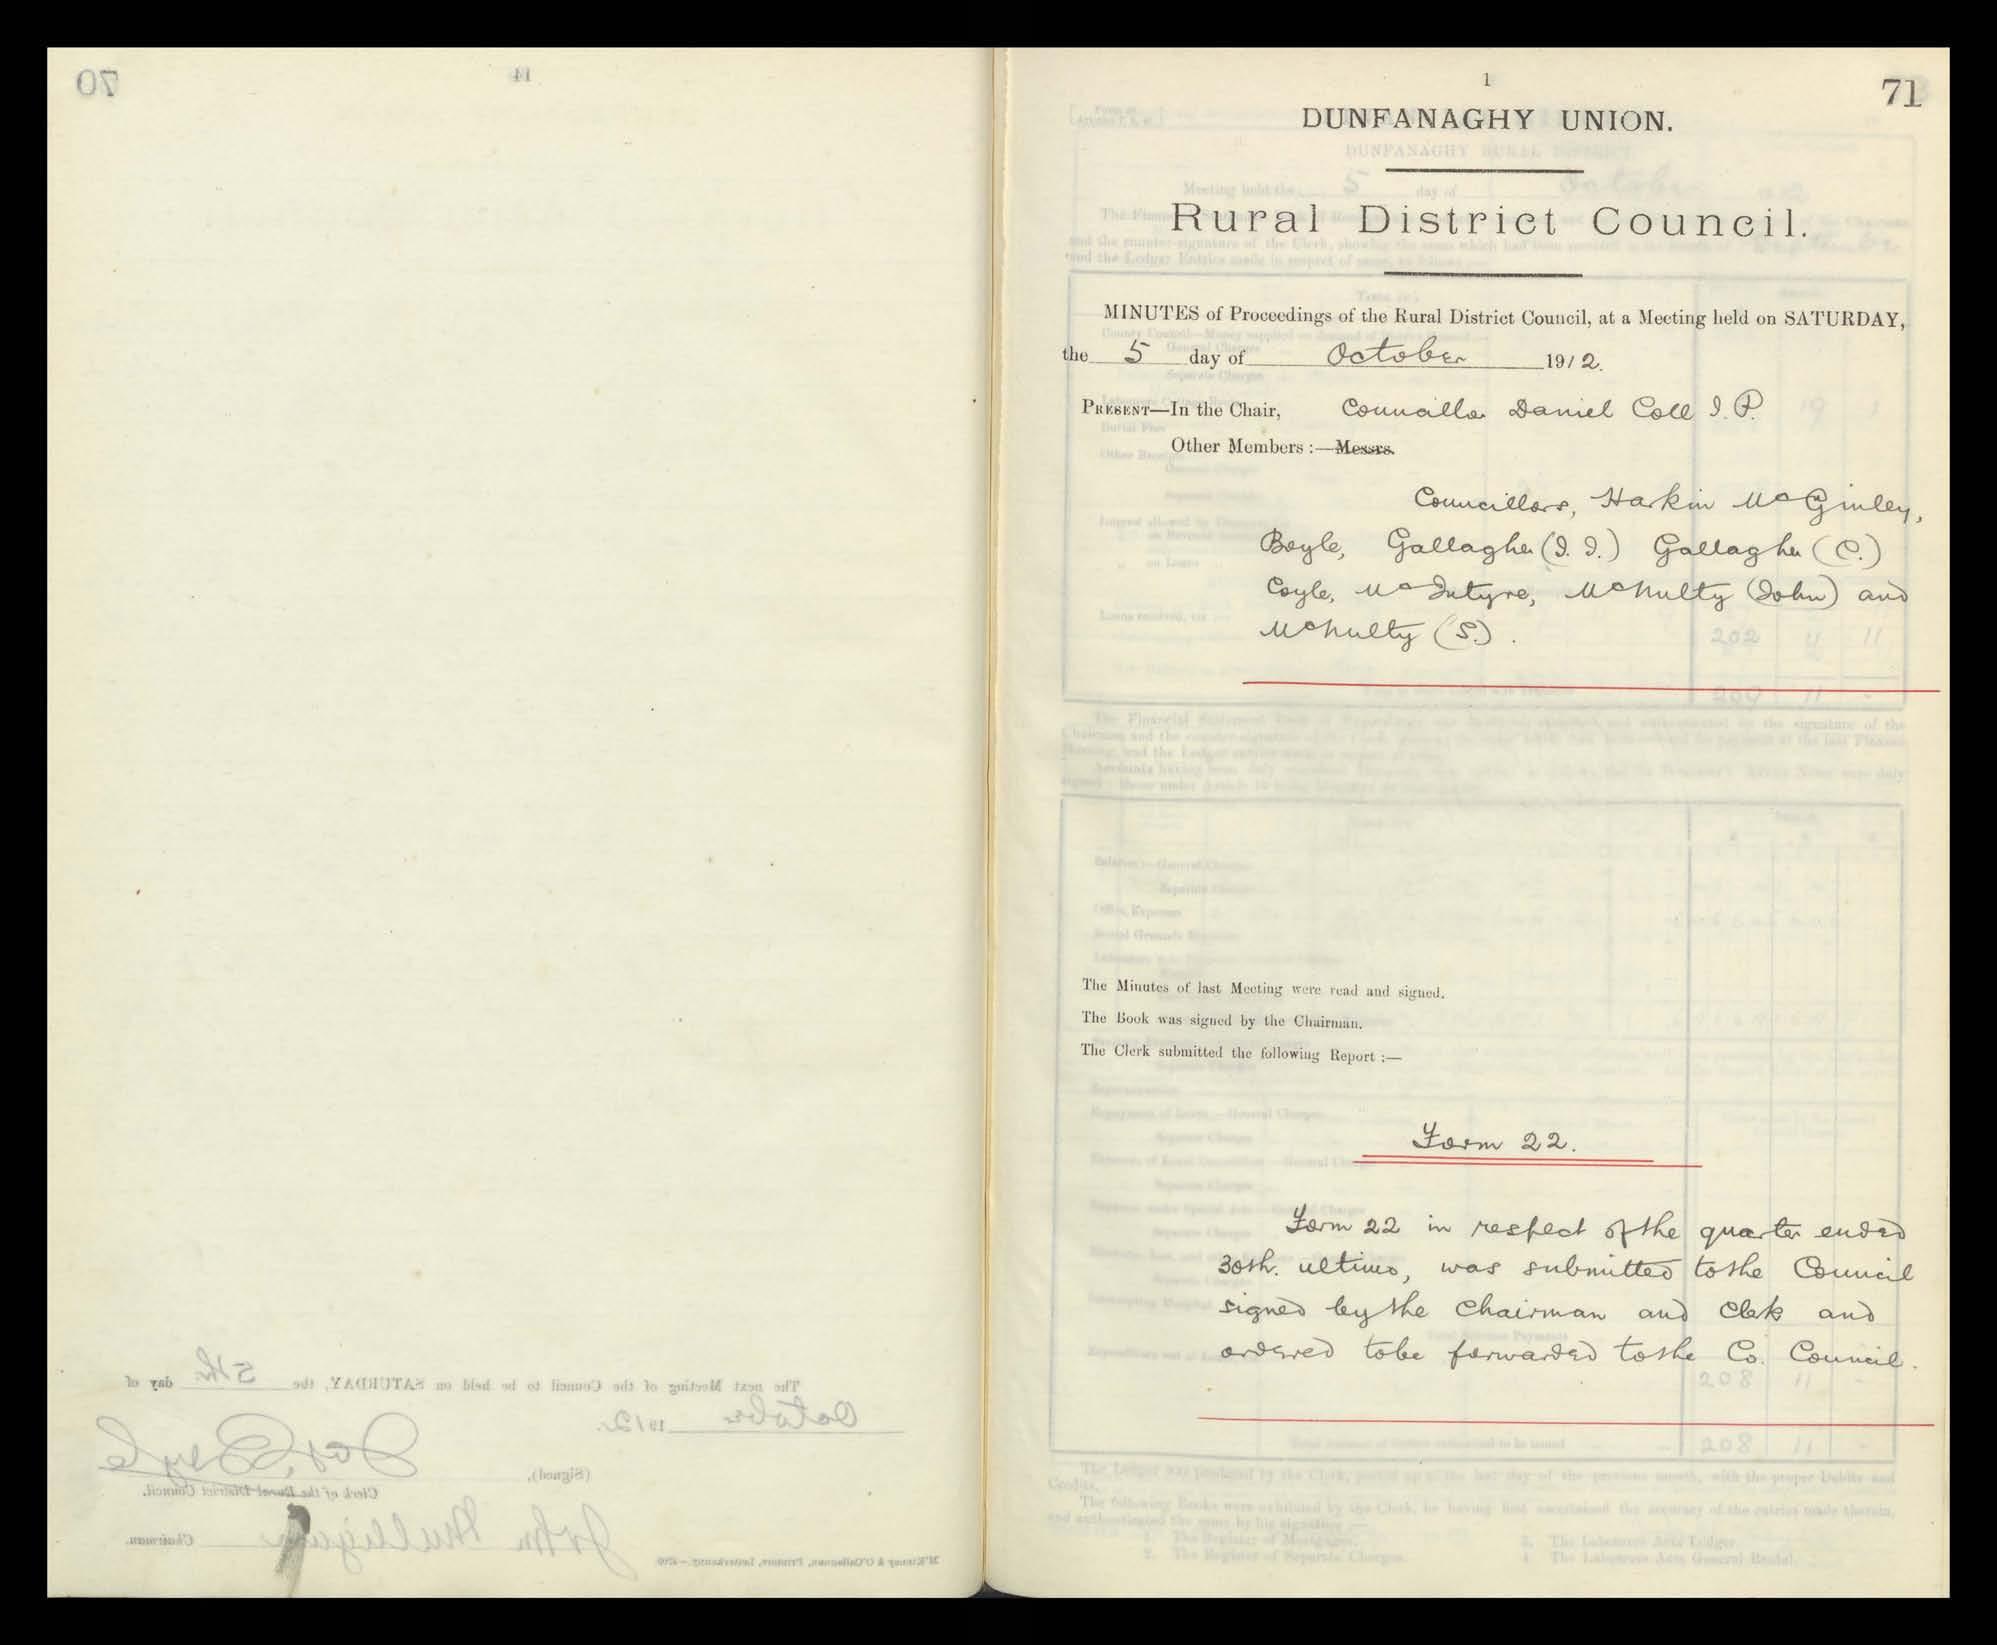 70
14
The next Meeting of the Council to be held on SATURDAY, the 5th. day of
October 1912.
(Signed),
Jas. Boyle
Clerk of the Rural District Council.
John Mulligan Chairman.
1
71
DUNFANAGHY UNION.
Rural District Council.
MINUTES of Proceedings of the Rural District Council, at a Meeting held on SATURDAY,
the 5 day of October 1912.
PRESENT—In the Chair, Councillor Daniel Coll J. P.
Other Members :—Messrs.
Councillors, Harkin McGinley,
Boyle, Gallagher (J. J.) Gallagher (C.)
Coyle, McIntyre, McNulty (John) and
McNulty (S.) .
The Minutes of last Meeting were read and signed.
The Book was signed by the Chairman.
The Clerk submitted the following Report :—
Form 22.
Form 22 in respect of the quarter ended
30th. ultimo, was submitted to the Council
signed by the Chairman and Clerk and
ordered to be forwarded to the Co. Council.